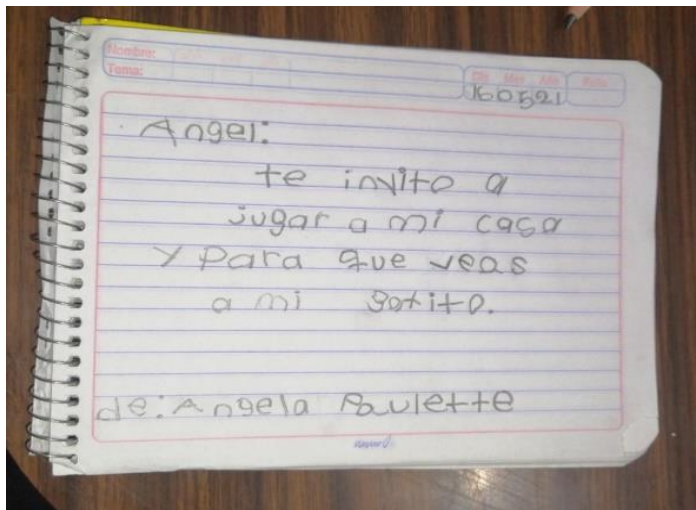 Nombre:
Tema:
Día Mes Año
160521
Angel:
te invito a
jugar a mi casa
y para que veas
a mi gatito.
de: Angela Paulette